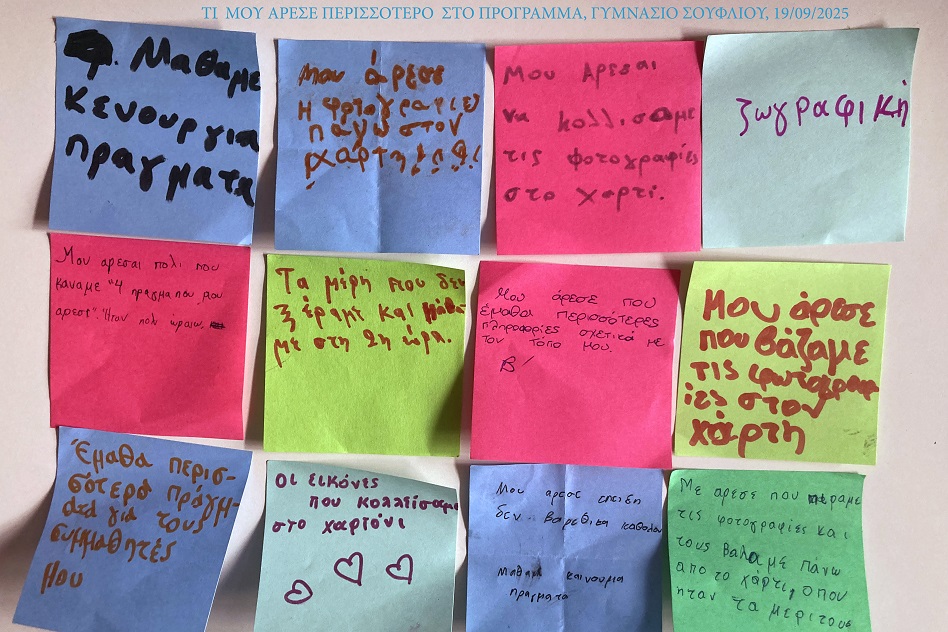 ΤΙ ΜΟΥ ΑΡΕΣΕ ΠΕΡΙΣΣΟΤΕΡΟ ΣΤΟ ΠΡΟΓΡΑΜΜΑ, ΓΥΜΝΑΣΙΟ ΣΟΥΦΛΙΟΥ, 19/09/2025
Μαθαμε
κενουργια
πραγματα
Μου άρεσε
η φοτογραφιες
πάνω στον
χάρτη!
Μου Αρεσαι
να κολλισομε
τις φοτογραφίες
στο χαρτί.
ζωγραφική
Μου αρεσαι πολι που
καναμε "4 πραγματα που μου
αρεσε". Ήταν πολι ωραιω.
Τα μέρη που δεν
ξέραμε και μάθα-
με στη 2η ώρα.
Μου άρεσε που
έμαθα περισσότερες
πληροφορίες σχετικά με
τον τόπο μου.
Β'
Μου άρεσε
που βάζαμε
τις φωτογραφ
ίες στον
χάρτη
Έμαθα περισ-
σότερα πράγμ-
ατα για τους
συμμαθητές
μου
Οι εικόνες
που κολλείσαμε
στο χαρτόνι
Μου αρεσε επειδη
δεν βαρεθικα καθολου
Μαθαμε καινουρια
πραγματα
Με αρεσε που περαμε
τις φοτογραφίες και
τους βαλαμε πάνω
απο το χάρτι, οπου
ηταν τα μερι τους